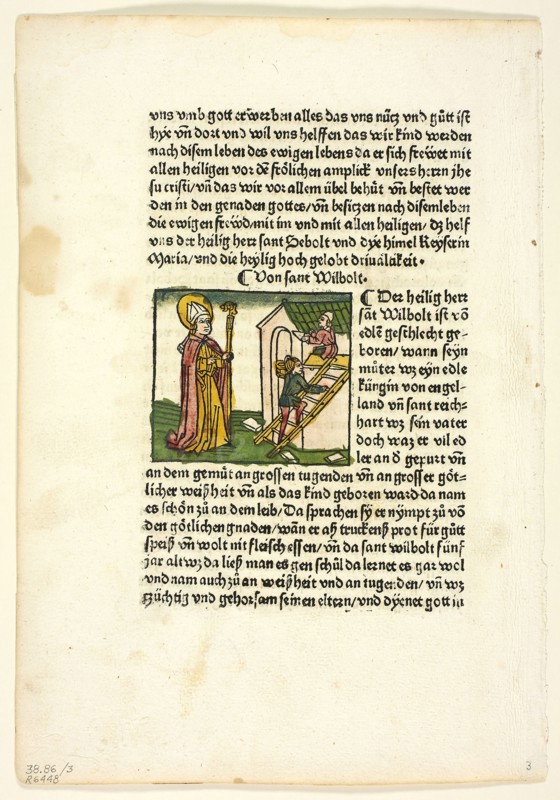 vns vmb gott erwerben alles das vns nücz vnd gůtt ist
hye vn̄ dort vnd wil vns helffen das wir kind werden
nach disem leben des ewigen lebens da er sich frewet mit
allen heiligen vor dē frölichen amplick vnsers herrn jhe
su cristi/vn̄ das wir vor allem übel behüt vn̄ bestet wer
den in den genaden gottes/vn̄ besiczen nach disem leben
die ewigen frewd/mit im vnd mit allen heiligen/dz helf
vns der heilig herr sant Sebolt vnd dye himel Keyserin
Maria/vnd die heylig hoch gelobt driualtikeit.
¶ Von sant Wilbolt.
¶ Der heilig herr
sāt Wilbolt ist vō
edlē geschlecht ge-
boren/wann seyn
můter wz eyn edle
küngin von engel-
land vn̄ sant reich-
hart wz sein vater
doch waz er vil ed
ler an d̄ gepurt vn̄
an dem gemüt an grossen tugenden vn̄ an grosser göt-
licher weißheit vn̄ als das kind geboren ward da nam
es schön zů an dem leib/Da sprachen sy er nympt zů vō
den götlichen gnaden/wan er aß truckenß prot für gůtt
speiß vn̄ wolt nit fleisch essen/vn̄ da sant wilbolt fünf
jar alt wz da ließ man es gen schůl da lernet es gar wol
vnd nam auch zů an weißheit vnd an tugenden/vn̄ wz
züchtig vnd gehorsam seinen eltern/vnd dyenet gott in
38.86./3
R6448
3